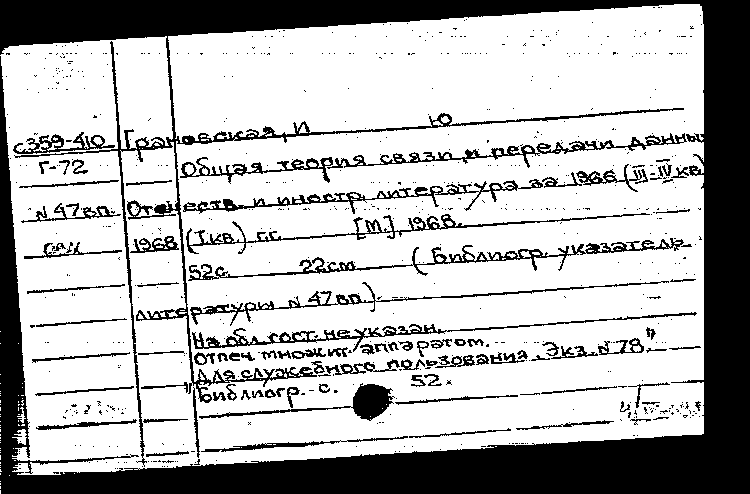 с359-410 Грановская, И Ю
Г-72 Общая теория связи и передачи данных
N 47вп. Отечеств. и иностр. литература за 1966 (III-IV кв)
1968 (I кв.) г.г. [М.], 1968.
52с. 22см (Библиогр. указатель
литературы N 47 вп.).
На обл. сост. не указан.
Отпеч. множит. аппаратом.
"Для служебного пользования. Экз. N 78."
Библиогр.-с. 52.